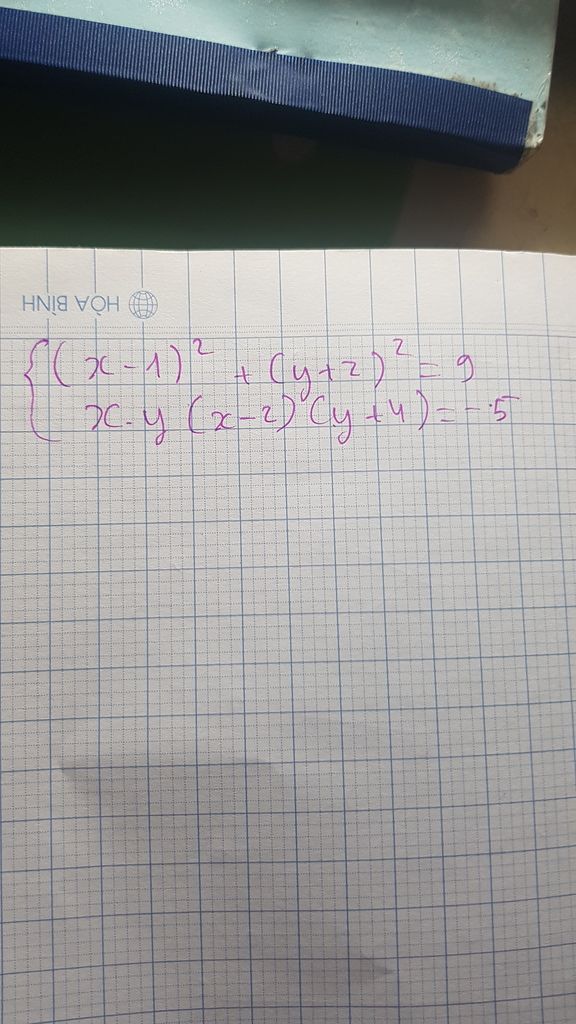 HÒA BÌNH
(x-1)² + (y+2)² = 9
x.y (x-2)(y+4) = -5